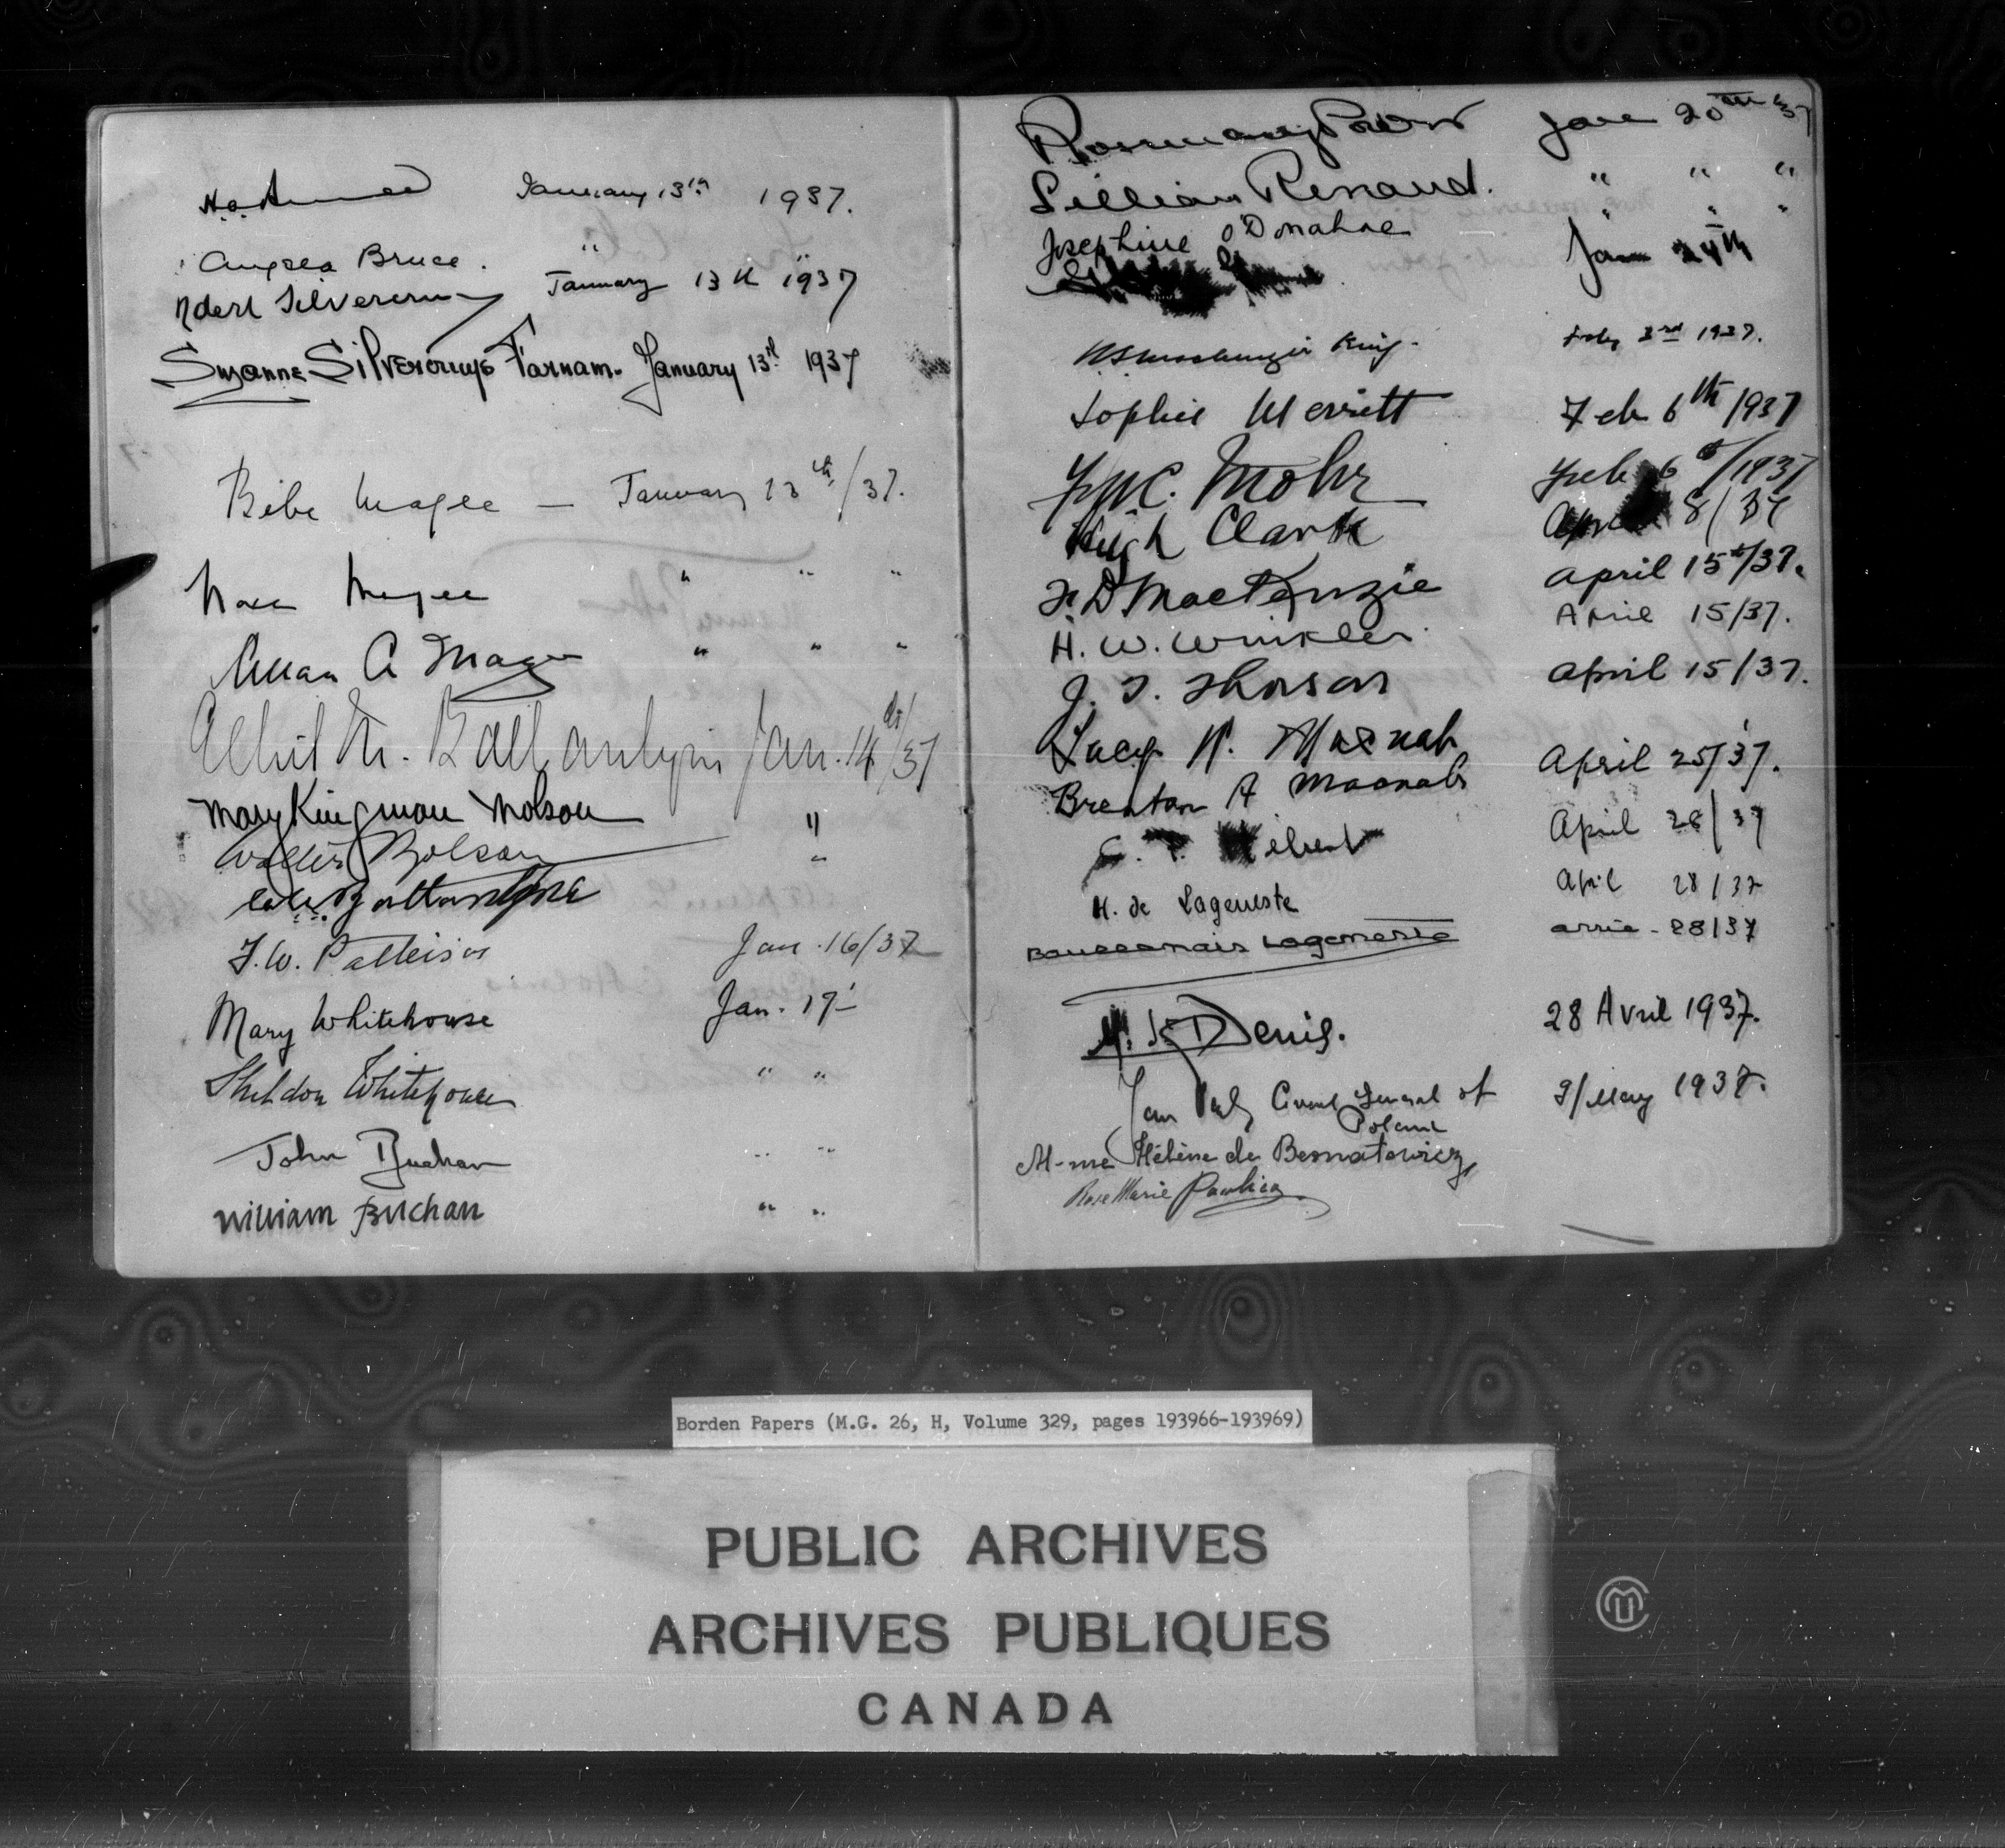 January 13th 1937.
Angela Bruce. " "
Robert Silvercruys January 13th 1937
Suzanne Silvercruys Farnam. January 13th 1937
Bébe Magee — January 13th/37.
Nora Magee " " "
Allan A Magee " " "
Ballantyne Jan. 14th/37
Mary Kingman Molson "
Walter Molson "
Ballantyne
Jan. 16/37
Mary Whitehouse Jan. 19
Sheldon Whitehouse " "
John Buchan " "
William Buchan " "
Rosemary Power Jan 20th 37
Lillian Renaud. " " "
Josephine O'Donahoe " " "
Jan 24th
King. Feby 3rd 1937.
Sophie Merritt Feb 6th/1937
Mohr Feb 6th/1937
Hugh Clark April 8/37
F. D MacKenzie April 15th/37.
H. W. Winkler April 15/37.
J. T. Thorson April 15/37.
Lucy Macnab April 25/37.
Brenton A Macnab
April 28/37
H. de Lageneste April 28/37
Lageneste 28/37
Denis. 28 Avril 1937.
Jan Consul General of 9/May 1937.
Poland
M-me Hélène de
Rose Marie
Borden Papers (M.G. 26, H, Volume 329, pages 193966-193969)
PUBLIC ARCHIVES
ARCHIVES PUBLIQUES
CANADA